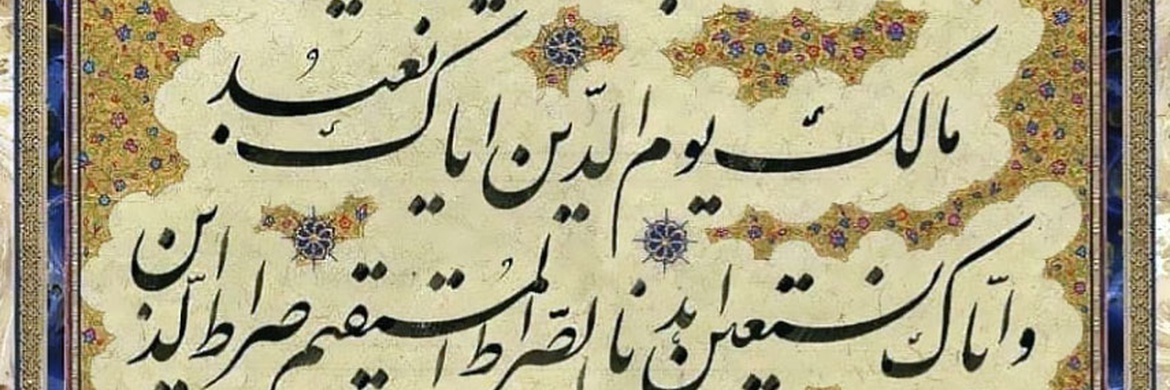 مالک یوم الدّین ایاک نعبد
و ایّاک نستعین اهدنا الصّراط المستقیم صراط الّذین